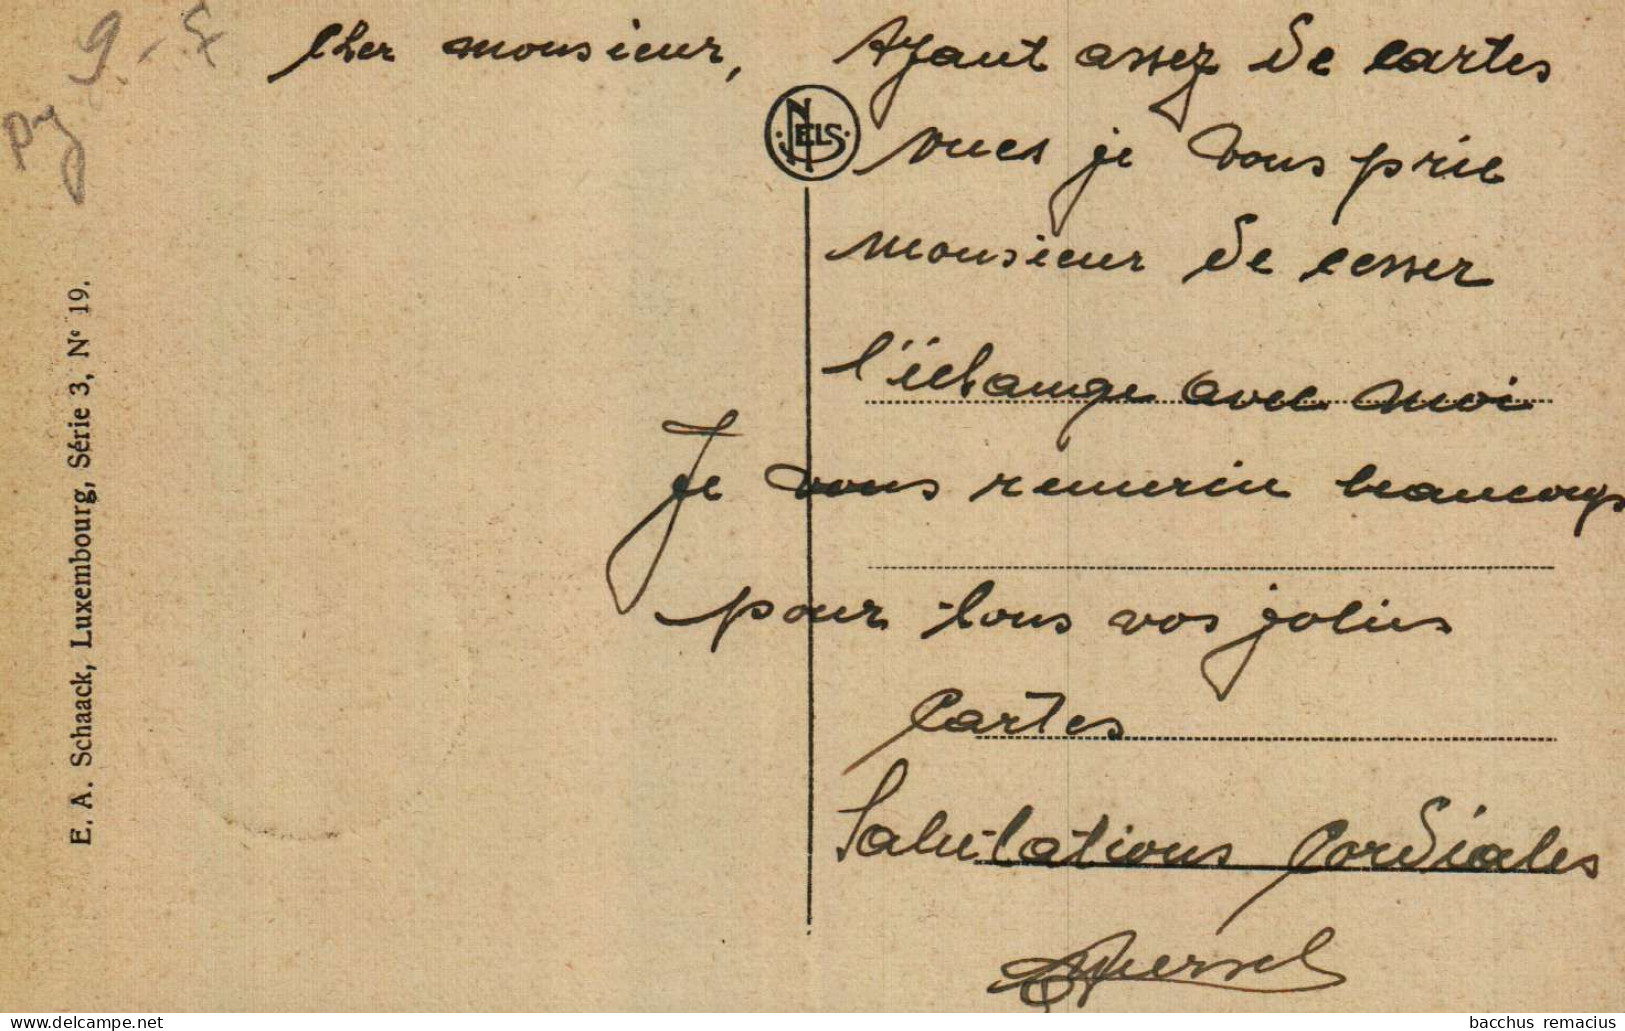 9 - 5
Cher monsieur, Ayant assez de cartes
NELS
vues je vous prie
monsieur de cesser
l'échange avec moi
Je vous remercie beaucoup
pour tous vos jolies
Cartes
Salutations Cordiales
E. A. Schaack, Luxembourg, Série 3, Nº 19.
bacchus remacius